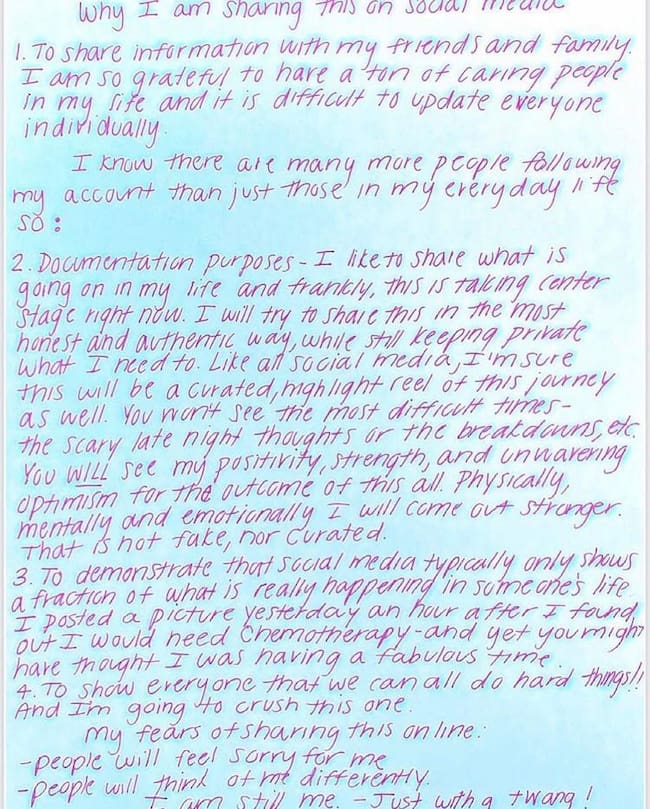 Why I am sharing this on social media
1. To share information with my friends and family.
I am so grateful to have a ton of caring people
in my life and it is difficult to update everyone
individually.
I know there are many more people following
my account than just those in my everyday life
so:
2. Documentation purposes - I like to share what is
going on in my life and frankly, this is taking center
stage right now. I will try to share this in the most
honest and authentic way, while still keeping private
what I need to. Like all social media, I'm sure
this will be a curated, highlight reel of this journey
as well. You won't see the most difficult times-
the scary late night thoughts or the breakdowns, etc.
You WILL see my positivity, strength, and unwavering
optimism for the outcome of this all. Physically,
mentally and emotionally I will come out stronger.
That is not fake, nor curated.
3. To demonstrate that social media typically only shows
a fraction of what is really happening in someone's life.
I posted a picture yesterday an hour after I found
out I would need chemotherapy - and yet you might
have thought I was having a fabulous time.
4. To show everyone that we can all do hard things!!
And I'm going to crush this one.
my fears of sharing this online:
-people will feel sorry for me
-people will think of me differently.
I am still me. - Just with a twang!